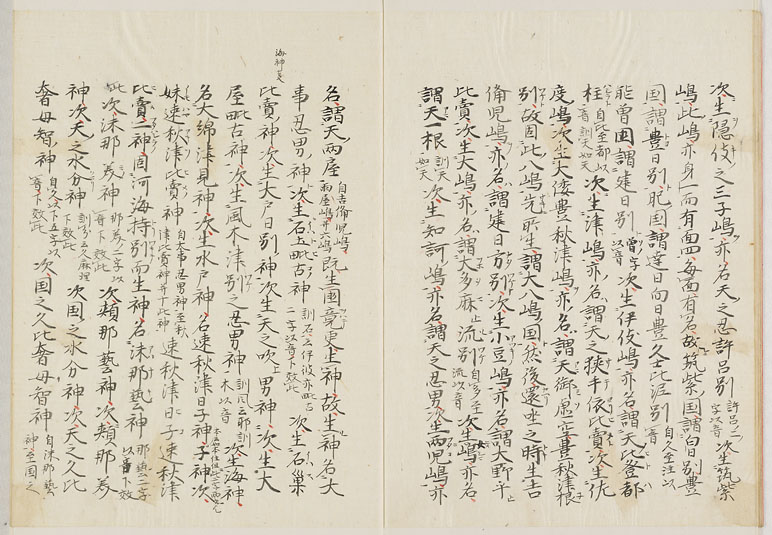 次生隠伎之三子嶋亦名天之忍許呂別許呂二字以音次生筑紫
嶋此嶋亦身一而有面四毎面有名故筑紫国謂白日別豊
国謂豊日別肥国謂建日向日豊久士比泥別自久至泥以音
熊曽国謂建日別曽字以音次生伊伎嶋亦名謂天比登都
柱自比至都以音訓天如天次生津嶋亦名謂天之狭手依比賣次生佐
度嶋次生大倭豊秋津嶋亦名謂天御虚空豊秋津根
別故因此八嶋先所生謂大八嶋国然後還坐之時生吉
備児嶋亦名謂建日方別次生小豆嶋亦名謂大野手上
比賣次生大嶋亦名謂大多麻上流別自多至流以音次生女嶋亦名
謂天一根訓天如天次生知訶嶋亦名謂天之忍男次生両児嶋亦
名謂天両屋自吉備児嶋至両屋嶋并六嶋既生国竟更生神故生神名大
事忍男神次生石土毗古神訓石云伊波亦毗古二字以音下效此次生石巣
比賣神次生大戸日別神次生天之吹上男神次生大
屋毗古神次生風木津別之忍男神訓風云耶訓木以音次生海神
名大綿津見神次生水戸神名速秋津日子神次
妹速秋津比賣神自大事忍男神至秋津比賣神并十神速秋津日子速秋津
比賣二神因河海持別而生神名沫那藝神那藝二字以音下效
此次沫那美神那美二字以音下效此次頬那藝神次頬那美
神次天之水分神訓分云久麻理下效此次国之水分神次天之久比
奢母智神自久以下五字以音下效此次国之久比奢母智神自沫那藝神至国之